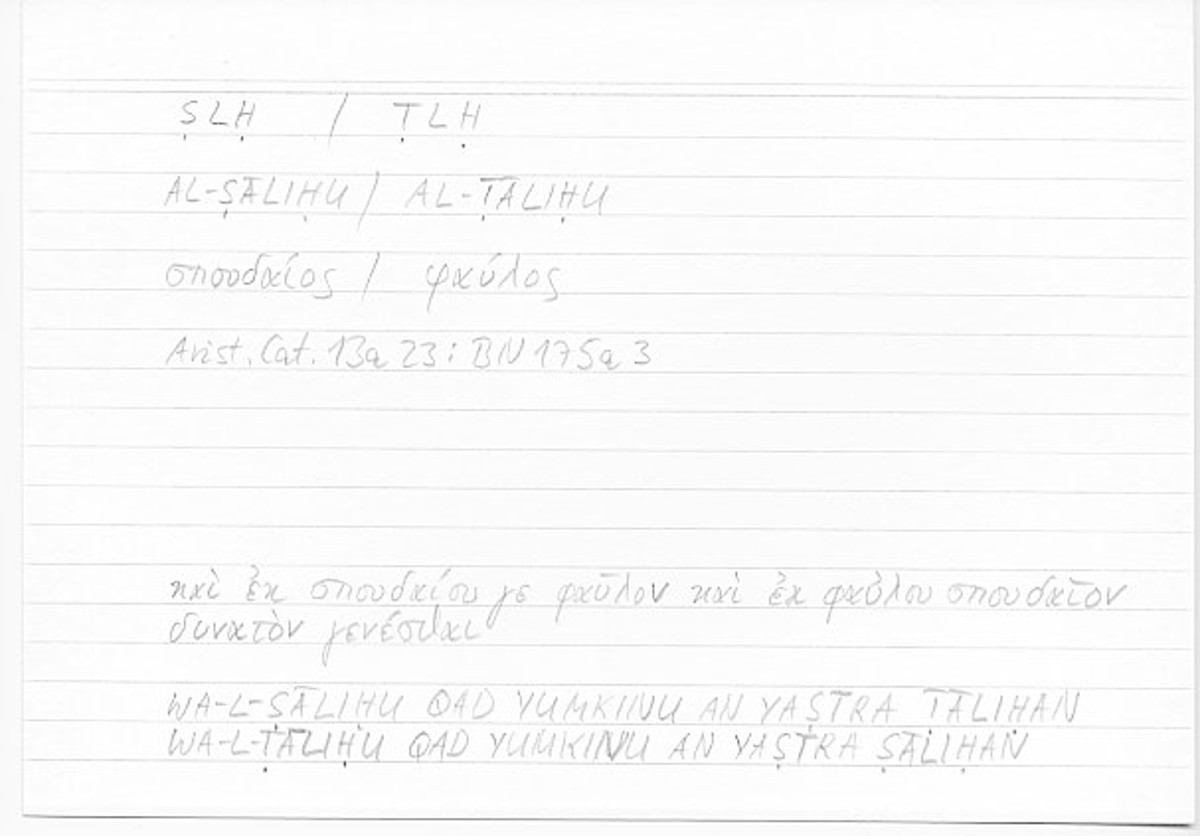 ṢLḤ / ṬLḤ
AL-ṢĀLIḤU / AL-ṬĀLIḤU
σπουδαίος / φαύλος
Arist. Cat. 13a 23 : BN 175a 3
καὶ ἐκ σπουδαίου γε φαῦλον καὶ ἐκ φαύλου σπουδαῖον
δυνατὸν γενέσθαι
WA-L-ṢĀLIḤU QAD YUMKINU AN YAṢĪRA ṬĀLIḤAN
WA-L-ṬĀLIḤU QAD YUMKINU AN YAṢĪRA ṢĀLIḤAN